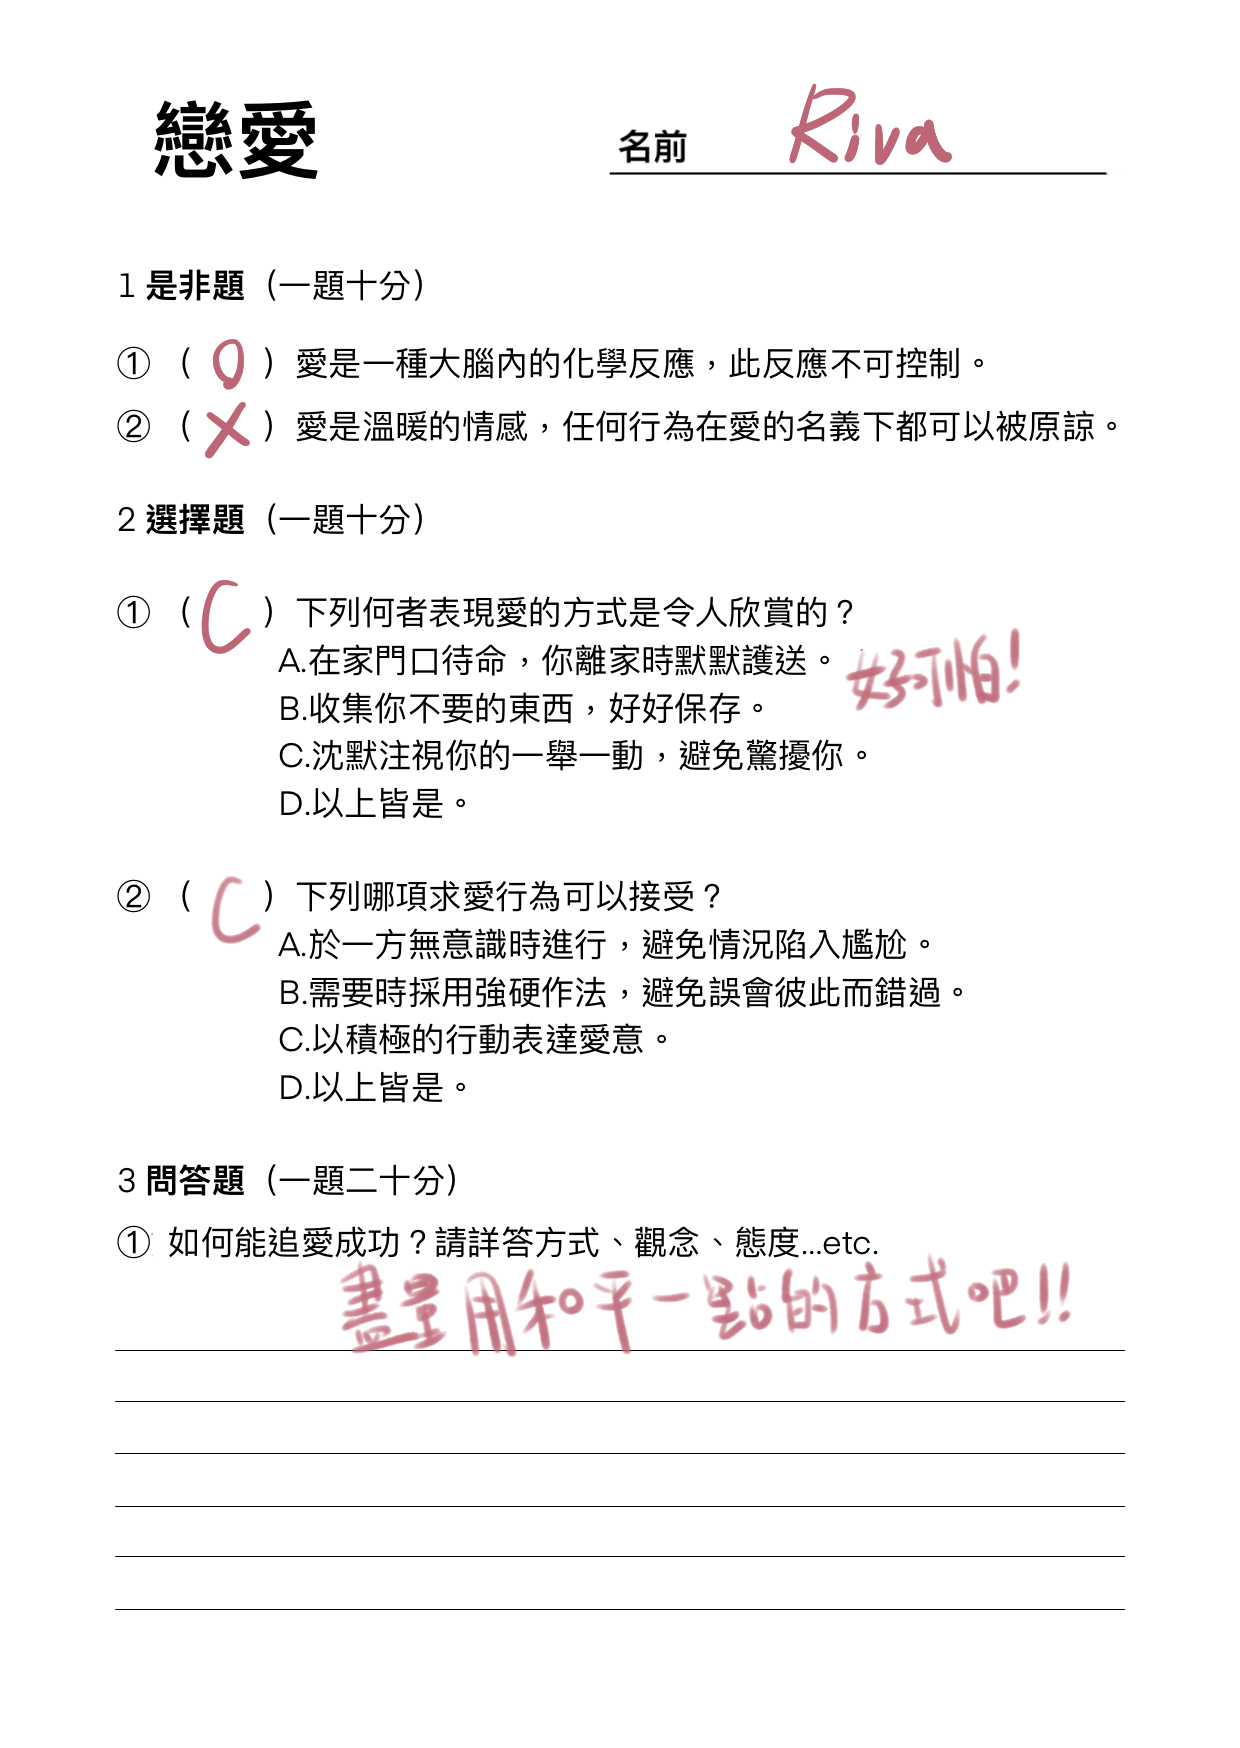 戀愛
名前 Riva
1 是非題（一題十分）
①（O）愛是一種大腦內的化學反應，此反應不可控制。
②（X）愛是溫暖的情感，任何行為在愛的名義下都可以被原諒。
2 選擇題（一題十分）
①（C）下列何者表現愛的方式是令人欣賞的？
A.在家門口待命，你離家時默默護送。
好可怕！
B.收集你不要的東西，好好保存。
C.沈默注視你的一舉一動，避免驚擾你。
D.以上皆是。
②（C）下列哪項求愛行為可以接受？
A.於一方無意識時進行，避免情況陷入尷尬。
B.需要時採用強硬作法，避免誤會彼此而錯過。
C.以積極的行動表達愛意。
D.以上皆是。
3 問答題（一題二十分）
① 如何能追愛成功？請詳答方式、觀念、態度...etc.
盡量用和平一點的方式吧！！